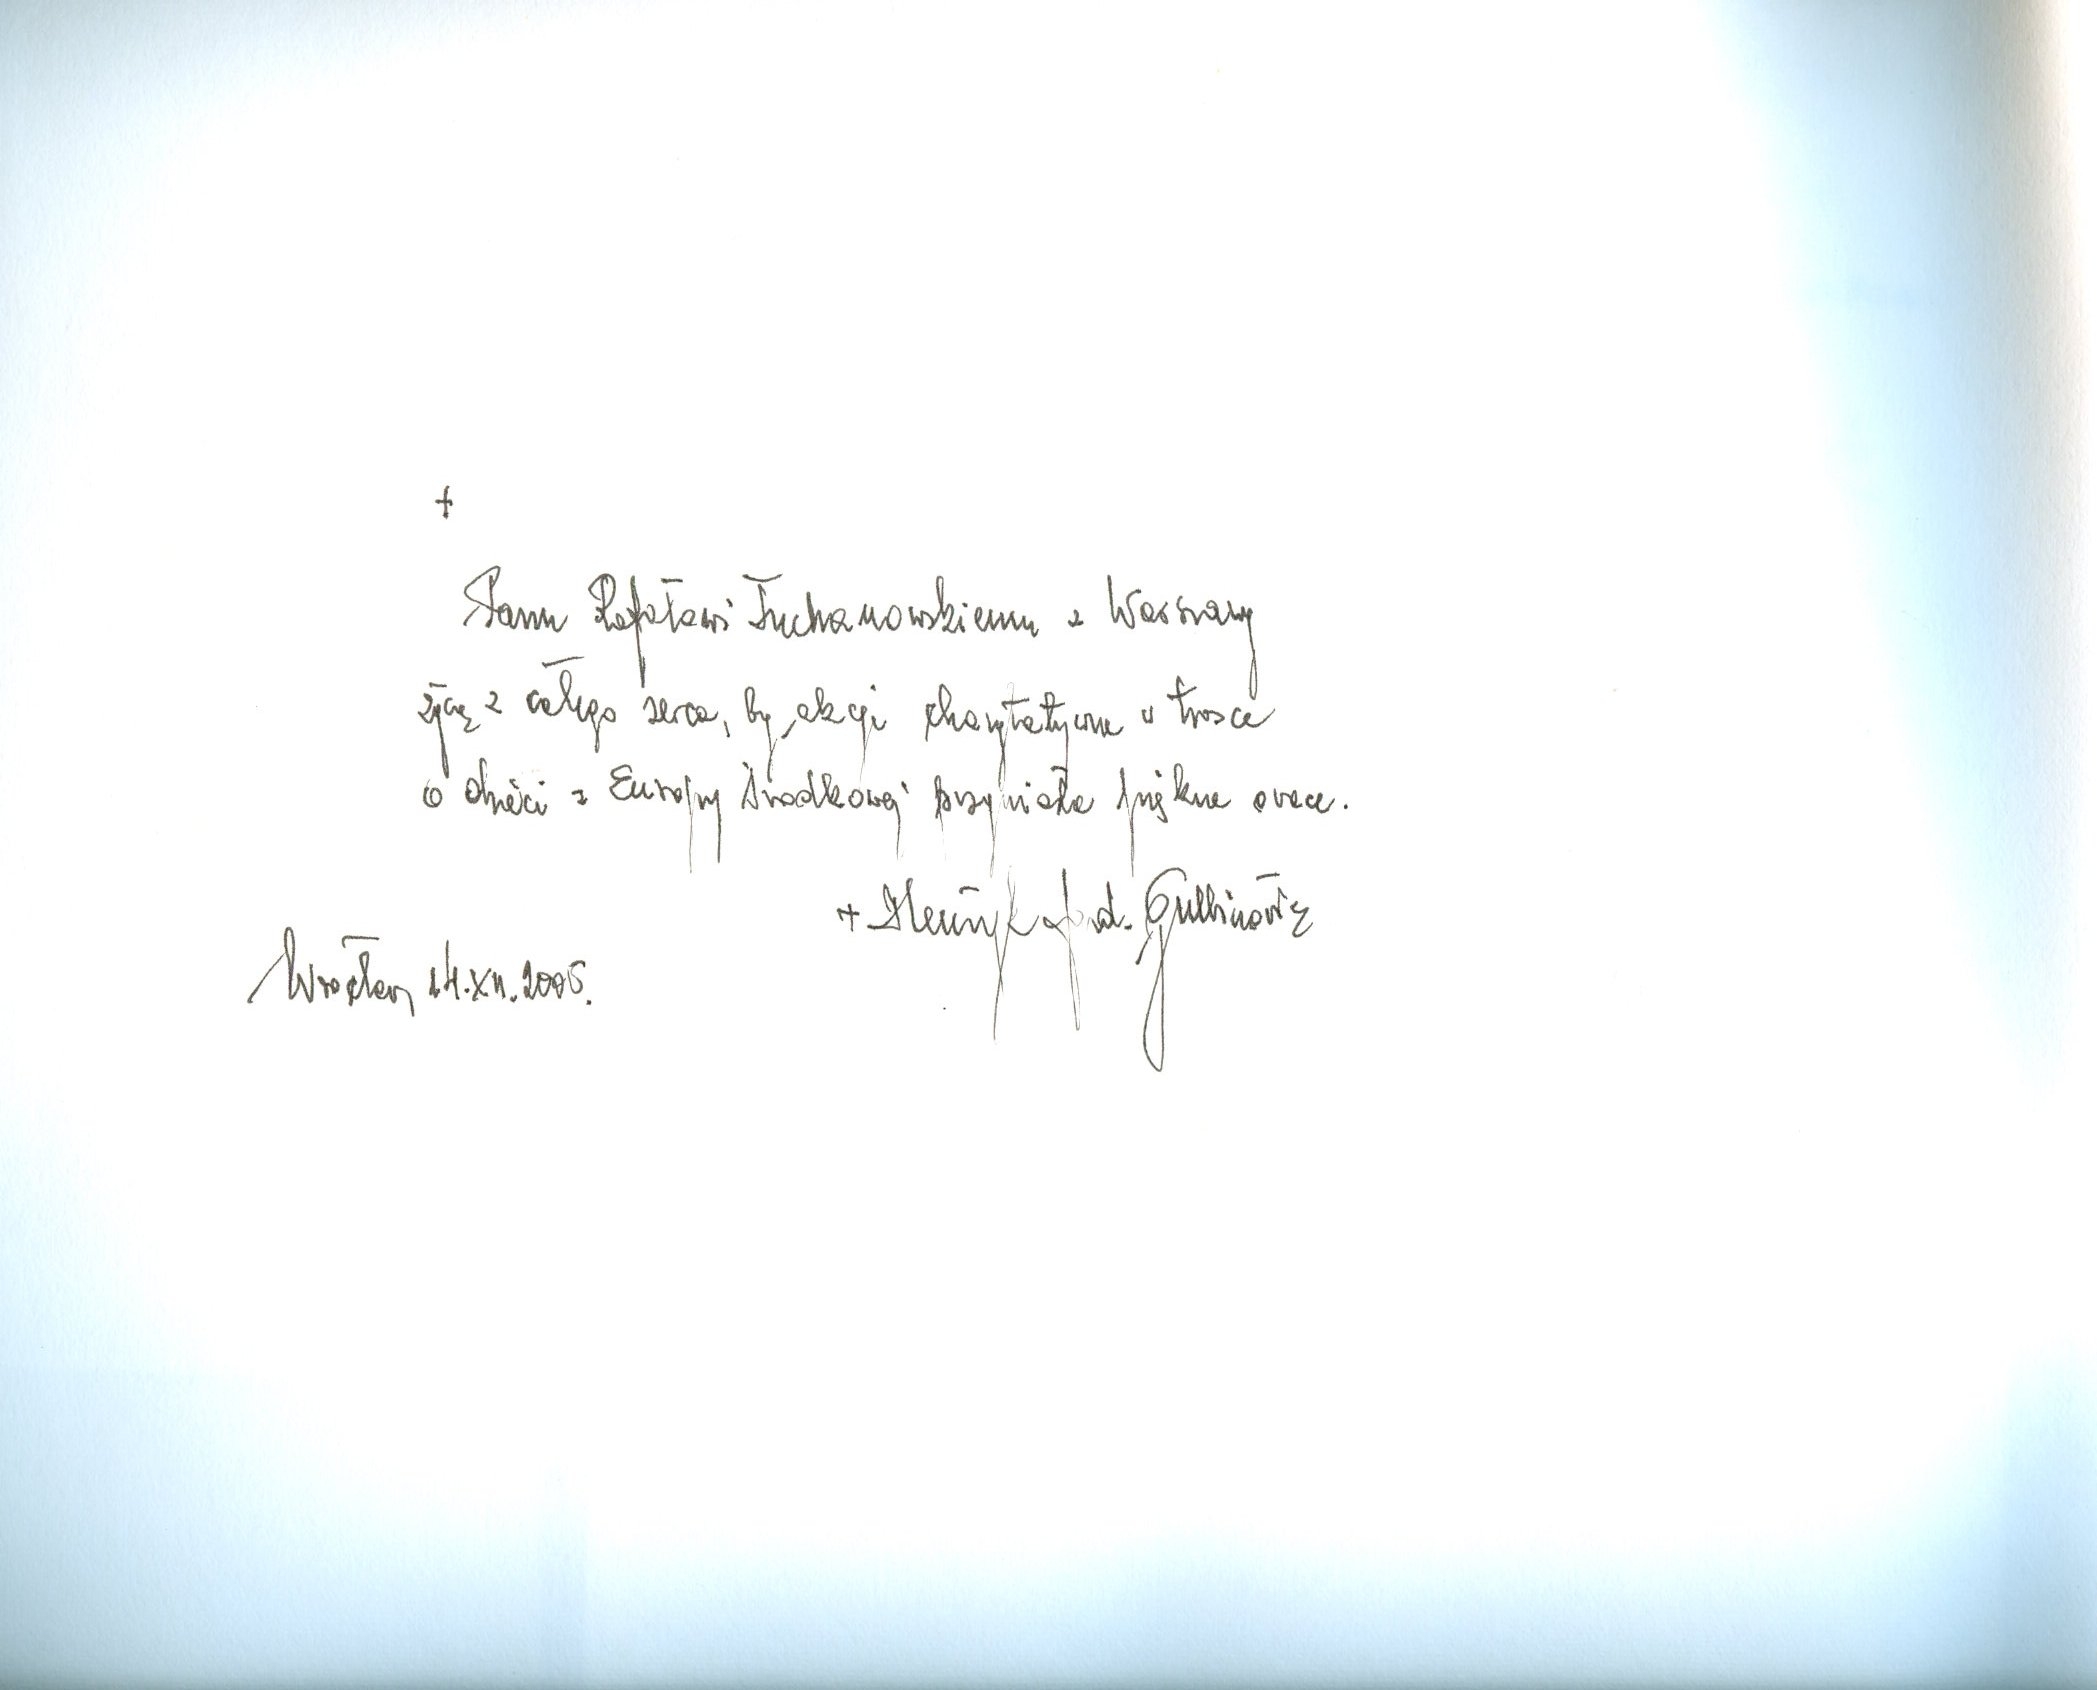 +
Panu Rafałowi Tuchanowskiemu z Warszawy
życzę z całego serca, by akcja charytatywna w trosce
o dzieci z Europy Środkowej przyniosła piękne owoce.
+ Henryk Kard. Gulbinowicz
Wrocław, 14.XII.2005.